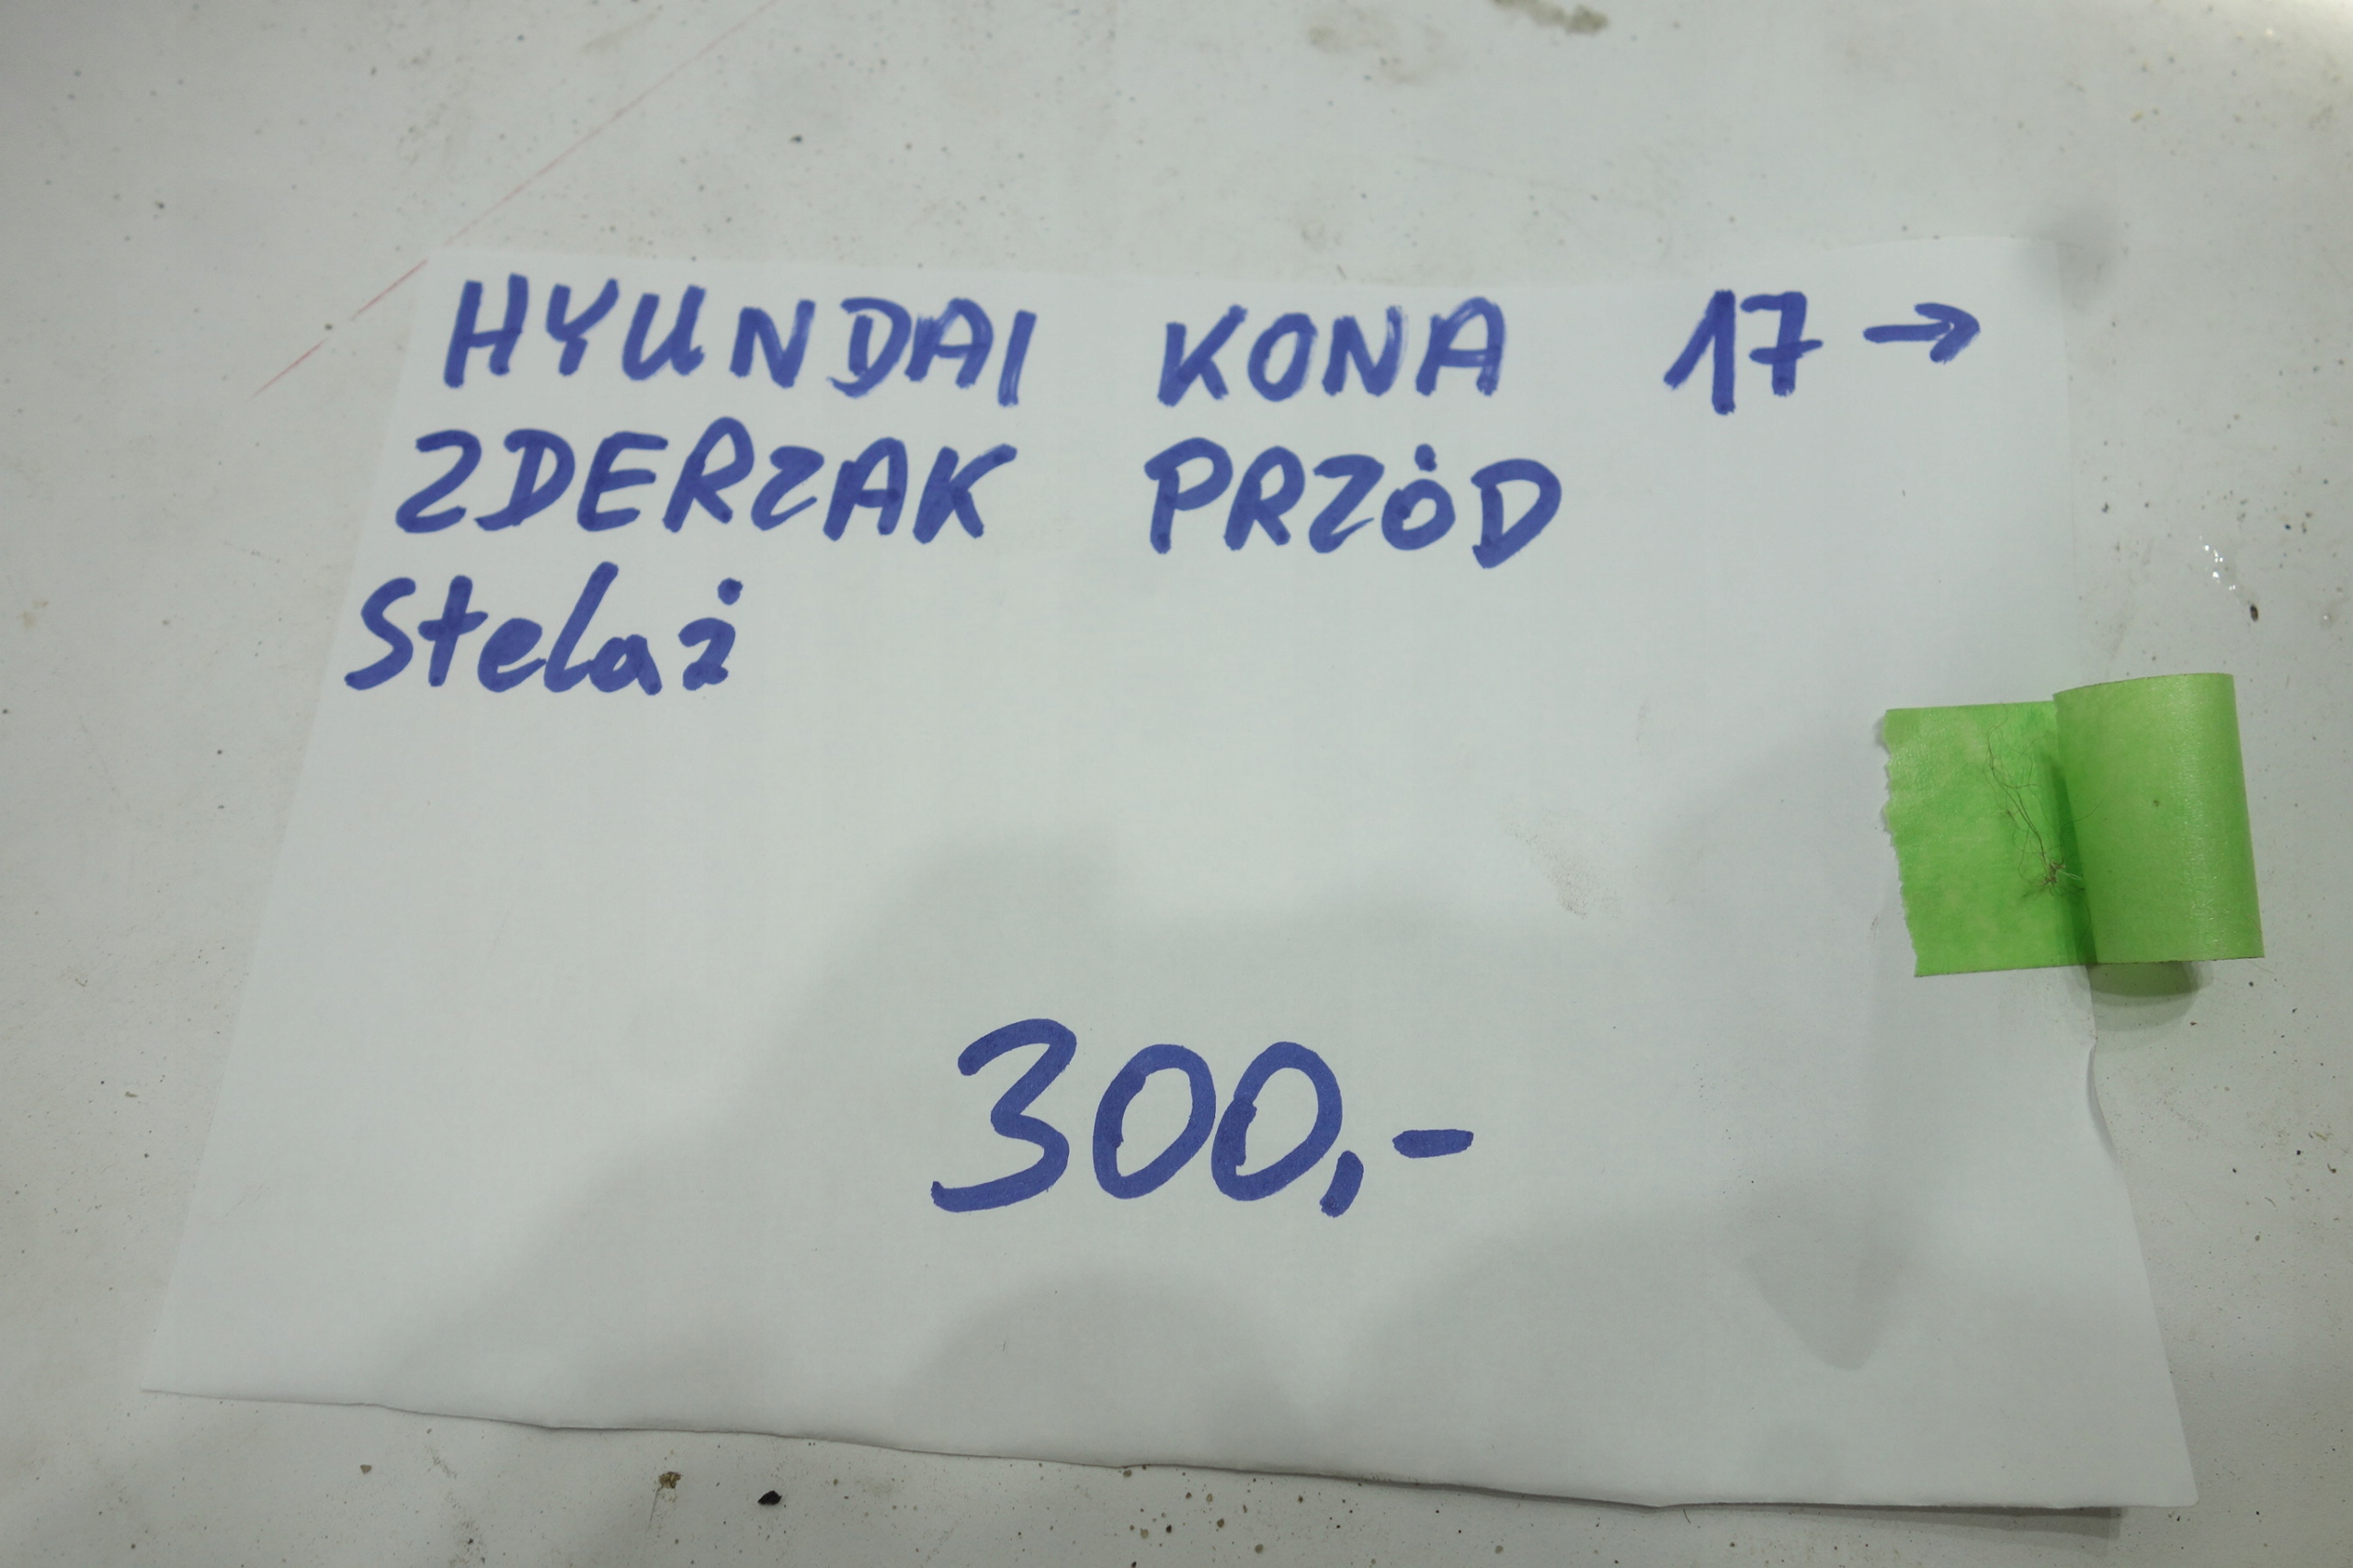 HYUNDAI KONA 17→
ZDERZAK PRZÓD
Stelaż
300,-